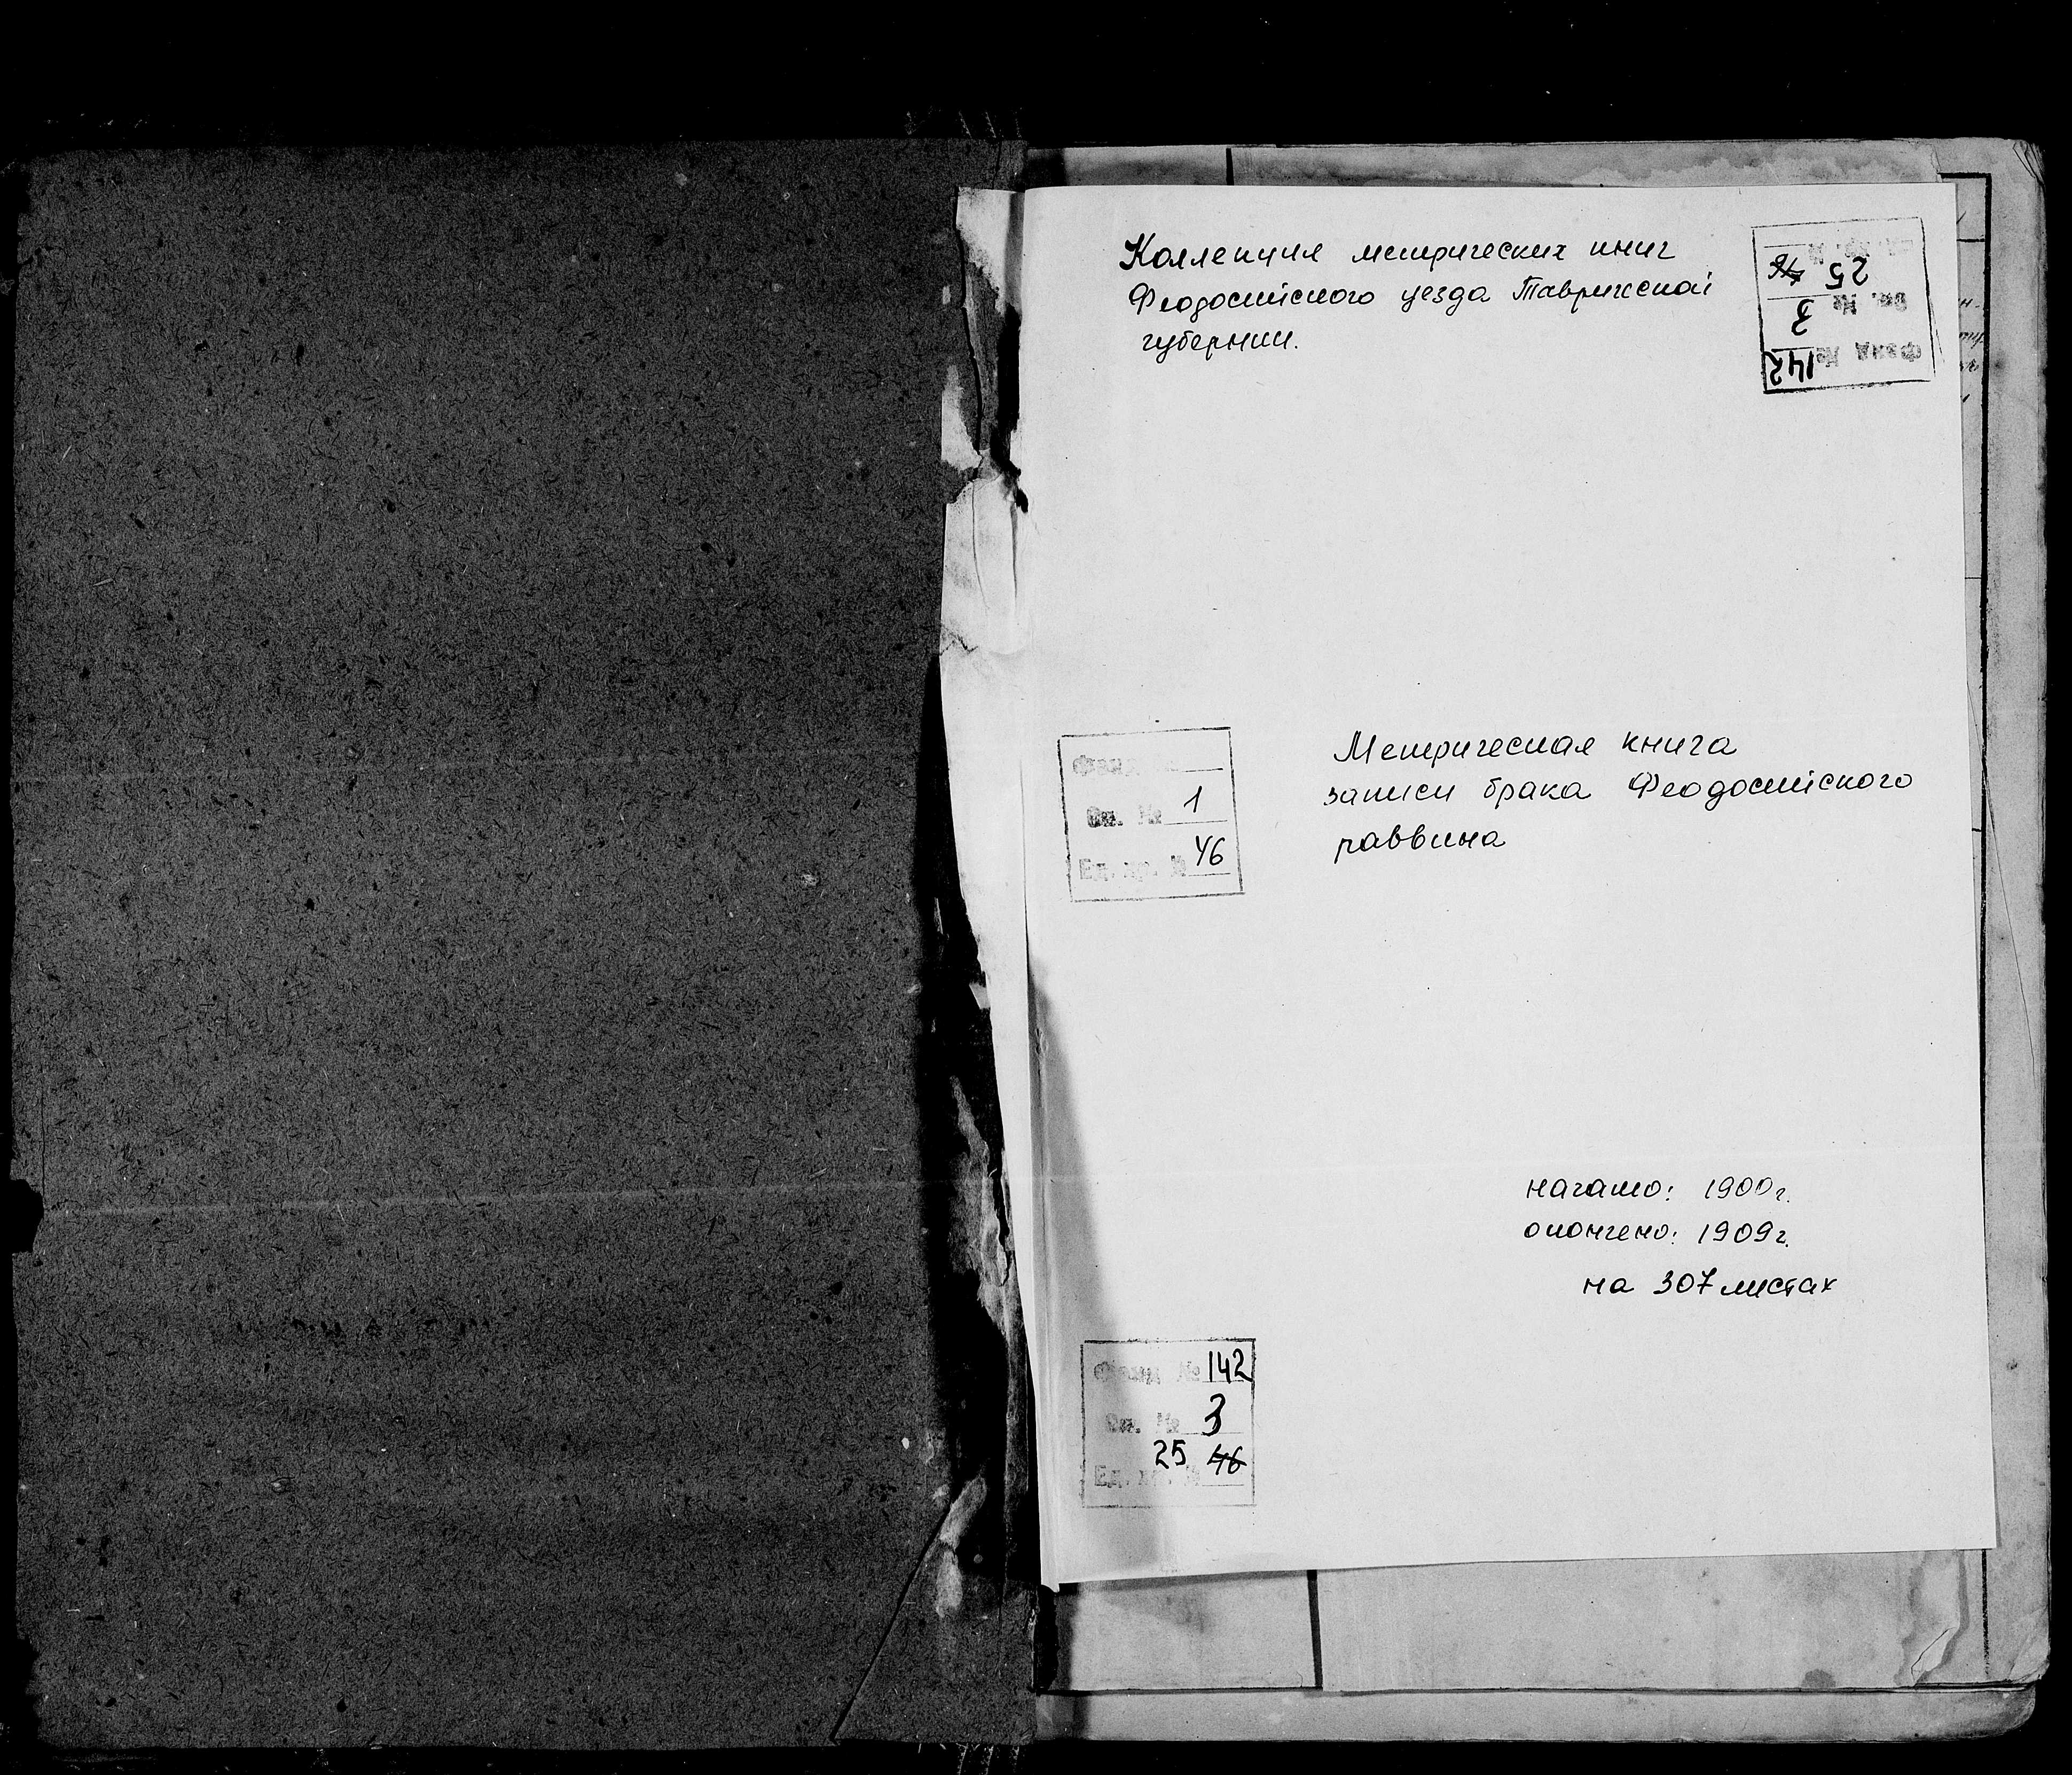 Коллекция метрических книг
Феодосийского уезда Таврической
губернии.
Ед. хр. № 25 46
Оп. № 3
Фонд № 142
Метрическая книга
записи брака Феодосийского
раввина
Фонд №
Оп. № 1
Ед. хр. № 46
начато: 1900г.
окончено: 1909г.
на 307 листах
Фонд № 142
Оп. № 3
25 46
Ед. хр. №